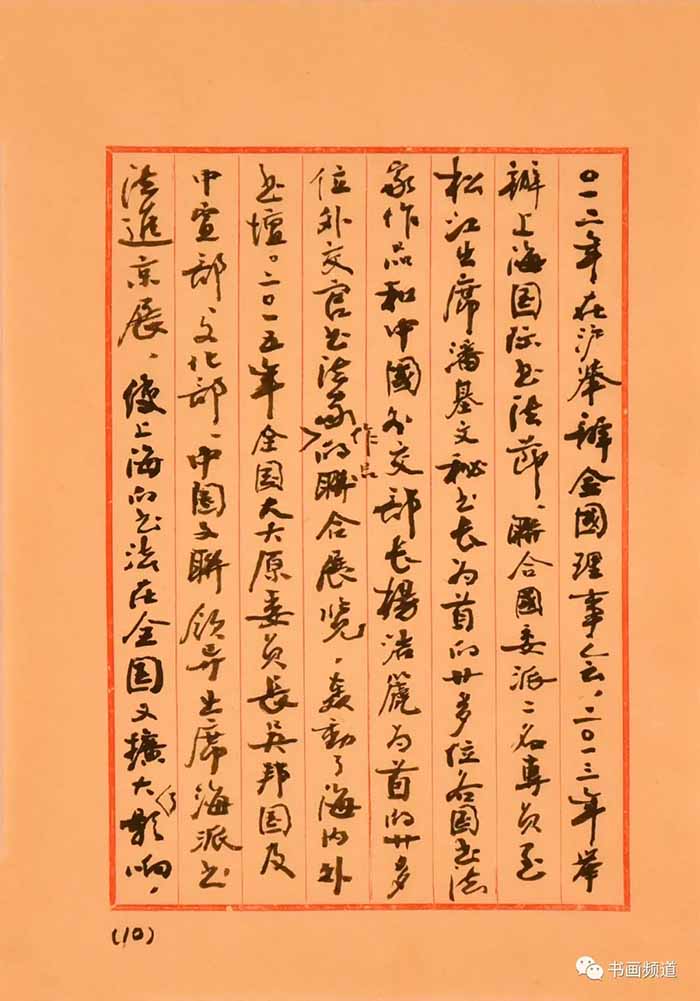 〇一二年在沪举辦全國理事会，二〇一三年举
辦上海国际书法節、聯合國委派二名專员至
松江出席潘基文秘书长为首的廿多位各国书法
家作品和中國外交部长楊洁篪为首的廿多
位外交官书法家作品的聯合展览，轰動了海内外
书壇。二〇一五年全国人大原委员長吴邦国及
中宣部、文化部、中国文聯领导出席海派书
法進京展，使上海的书法在全国又擴大了影响，
(10)
书画频道